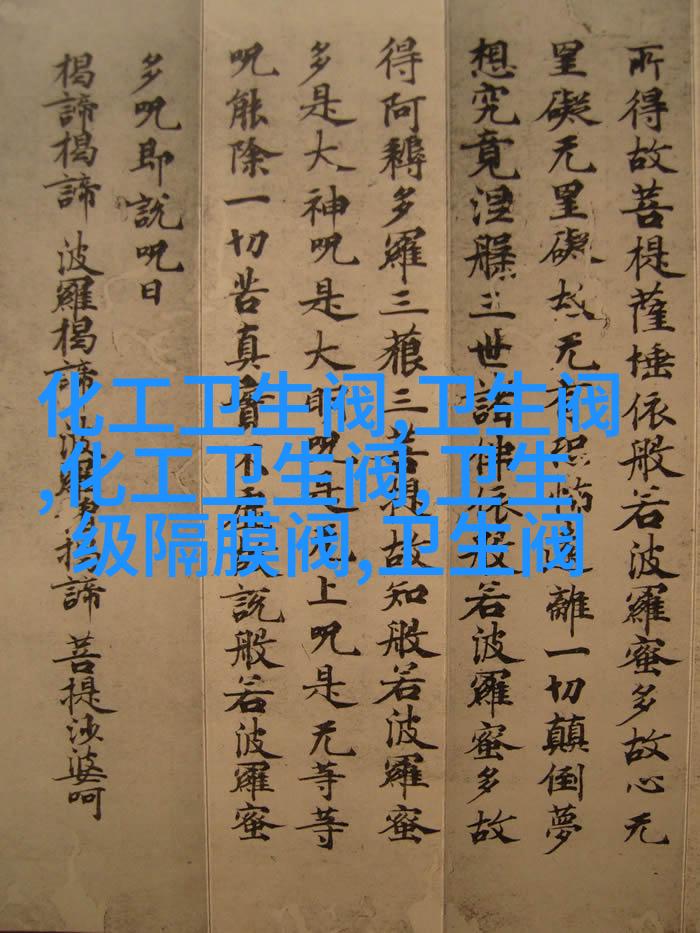 所得故菩提薩埵依般若波羅蜜多故心无
罣礙无罣礙故无有恐怖遠離一切顛倒夢
想究竟涅槃三世諸佛依般若波羅蜜多故
得阿耨多羅三藐三菩提故知般若波羅蜜
多是大神呪是大明呪是无上呪是无等等
呪能除一切苦真實不虛故說般若波羅蜜
多呪即說呪曰
揭諦揭諦 波羅揭諦 波羅僧揭諦 菩提沙婆呵
化工卫生阀,卫生阀
,化工卫生阀,卫生
级隔膜阀,卫生阀